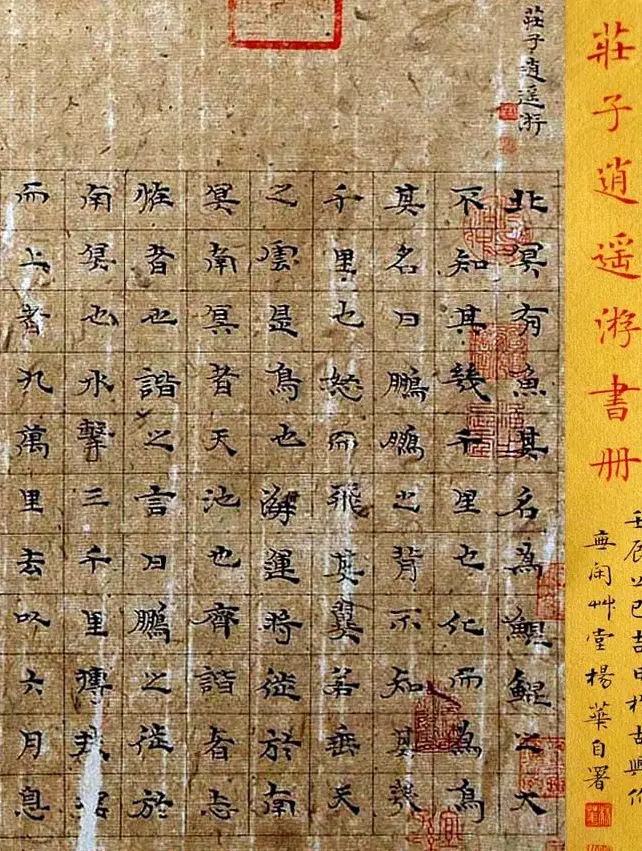 莊子逍遥游書册
壬辰巳吉日於古興作
無闲艸堂楊華自署
莊子逍遥游
北冥有魚其名為鯤鯤之大
不知其幾千里也化而為鳥
其名曰鵬鵬之背不知其幾
千里也怒而飛其翼若垂天
之雲是鳥也海運將徙於南
冥南冥者天池也齊諧者志
恠者也諧之言曰鵬之徙於
南冥也水擊三千里摶扶搖
而上者九萬里去以六月息